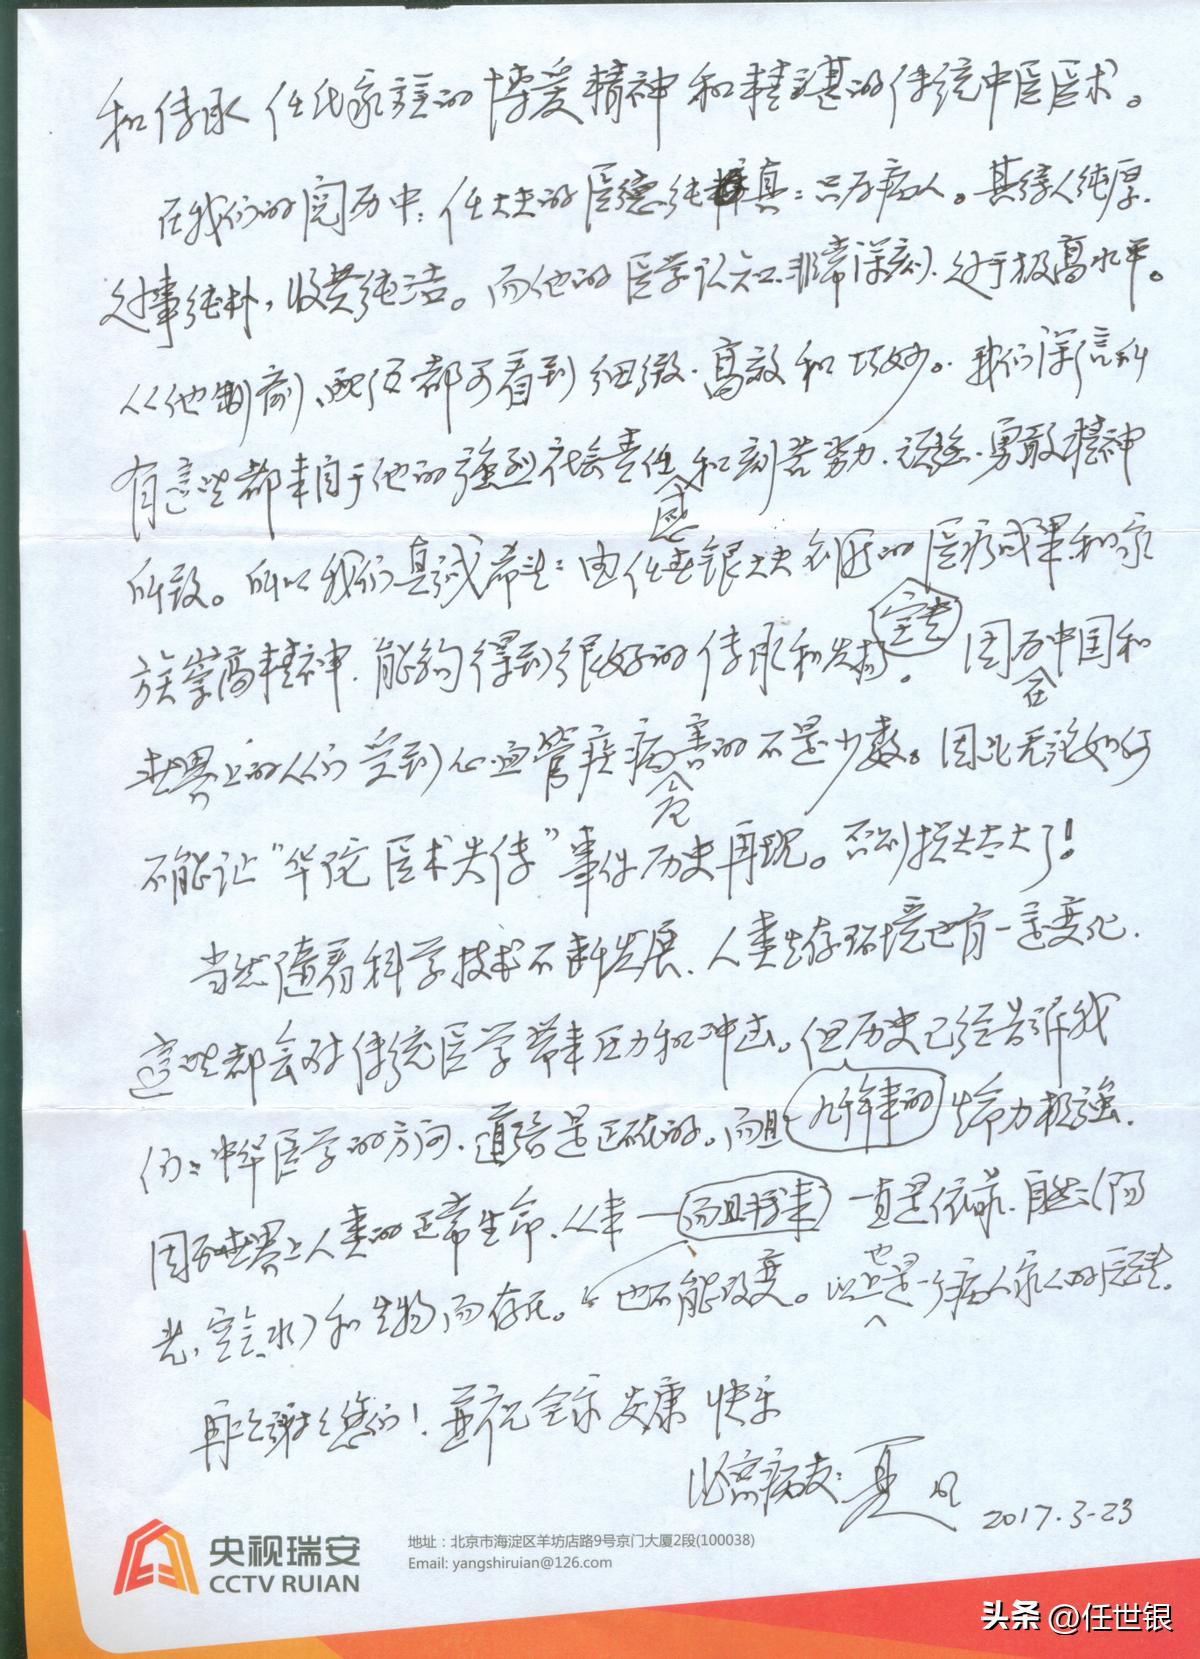 和传承任氏家族的博爱精神和精湛的传统中医医术。
在我们的阅历中：任大夫的医德纯真：只为病人。其待人纯厚.
处事纯朴，收费纯洁。而他的医学认知非常深刻、处于极高水平。
从他制剂、配伍都可看到细微、高效和巧妙。我们深信所
有这些都来自于他的强烈社会责任感和刻苦努力、顽强、勇敢精神
所致。所以我们真诚希望：由任世银大夫创造的医疗成果和家
族崇高精神、能够得到很好的传承和发扬。因为中国和
世界上的人们受到心血管疾病危害的不是少数。因此无论如何
不能让“华陀医术失传”事件历史再现。否则损失太大了！
当然随着科学技术不断发展、人类生存环境也有一定变化.
这些都会对传统医学带来压力和冲击。但历史已经告诉我
们：中华医学的方向、道路是正确的。而且几千年来的生命力极强.
因为世界上人类的正常生命、从来一直是依靠、自然（阳
光、空气、水）和生物而存在。而且将来也不能改变。以上也是一个病人家人的
再次谢谢您们！并祝全家安康快乐
北京病友：夏
2017.3-23
央视瑞安
CCTV RUIAN
地址：北京市海淀区羊坊店路9号京门大厦2段(100038)
Email: yangshiruian@126.com
头条 @任世银